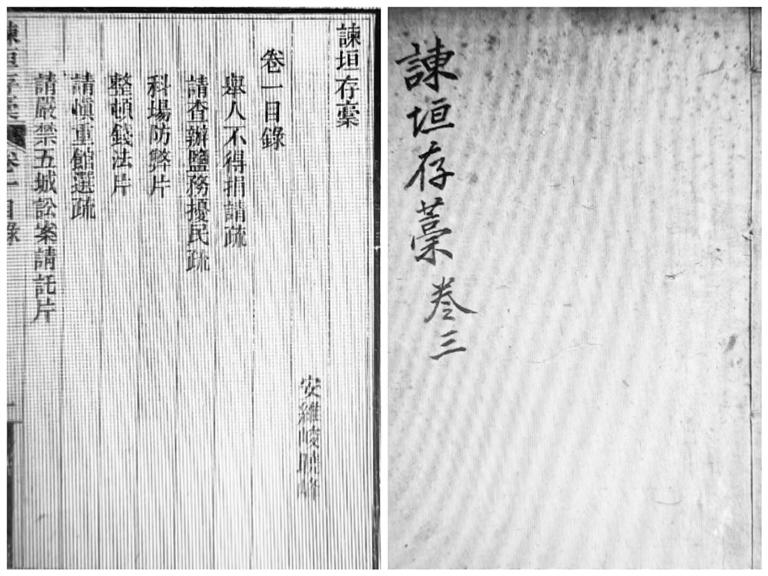 諫垣存稾
安維峻曉峰
卷一目錄
舉人不得捐請疏
請查辦鹽務擾民疏
科場防弊片
整頓錢法片
請慎重館選疏
請嚴禁五城訟案請託片
諫垣存稾 卷一目錄 一
諫垣存藁 卷三